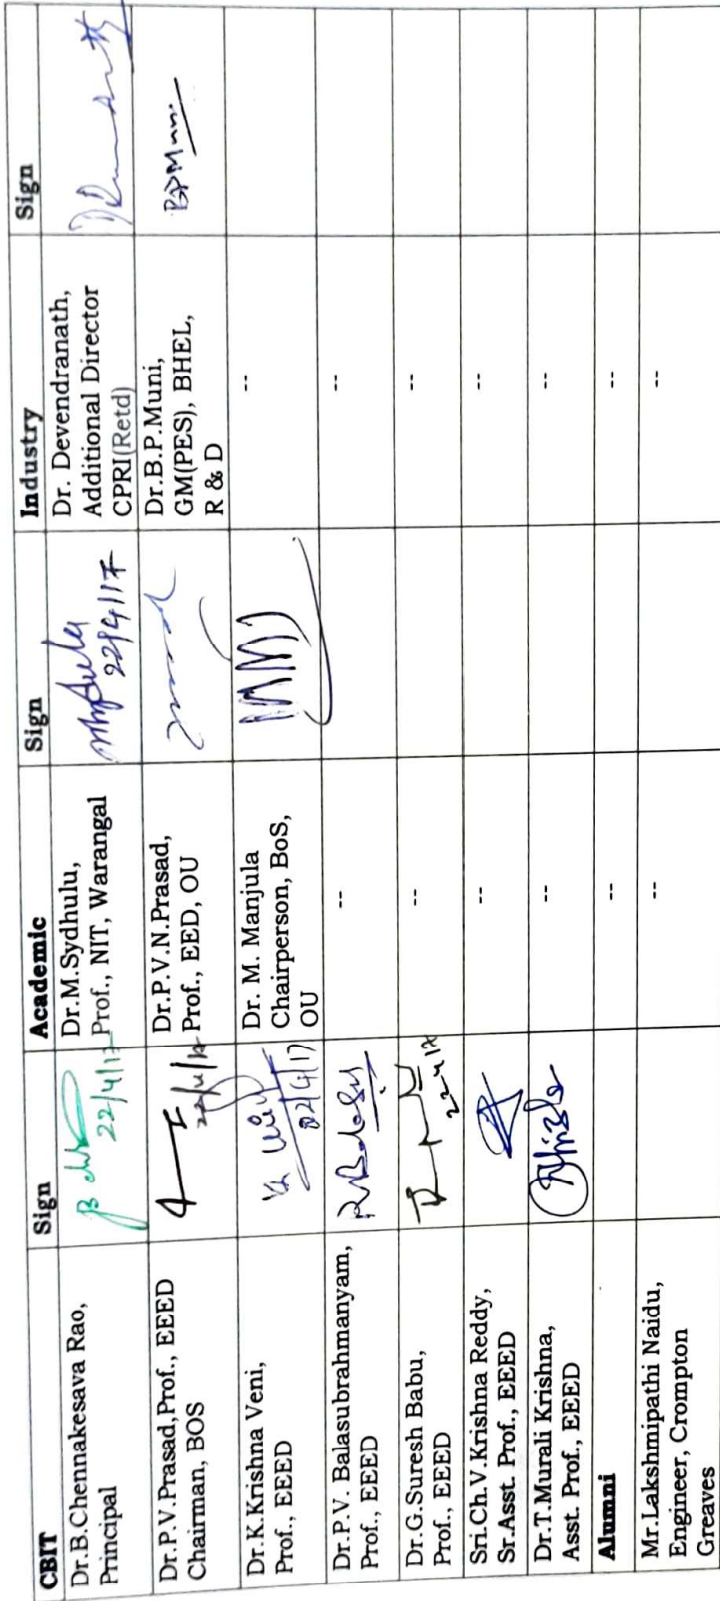 CBIT Sign Academic Sign Industry Sign
Dr.B.Chennakesava Rao,
Principal
22/4/17
Dr.M.Sydhulu,
Prof., NIT, Warangal
22/4/17
Dr. Devendranath,
Additional Director
CPRI(Retd)
Dr.P.V.Prasad,Prof., EEED
Chairman, BOS
22/4/17
Dr.P.V.N.Prasad,
Prof., EED, OU
Dr.B.P.Muni,
GM(PES), BHEL,
R & D
BPMuni
Dr.K.Krishna Veni,
Prof., EEED
22/4/17
Dr. M. Manjula
Chairperson, BoS,
OU
--
Dr.P.V. Balasubrahmanyam,
Prof., EEED
-- --
Dr.G.Suresh Babu,
Prof., EEED
22-4-17
-- --
Sri.Ch.V.Krishna Reddy,
Sr.Asst. Prof., EEED
-- --
Dr.T.Murali Krishna,
Asst. Prof., EEED
-- --
Alumni -- --
Mr.Lakshmipathi Naidu,
Engineer, Crompton
Greaves
-- --